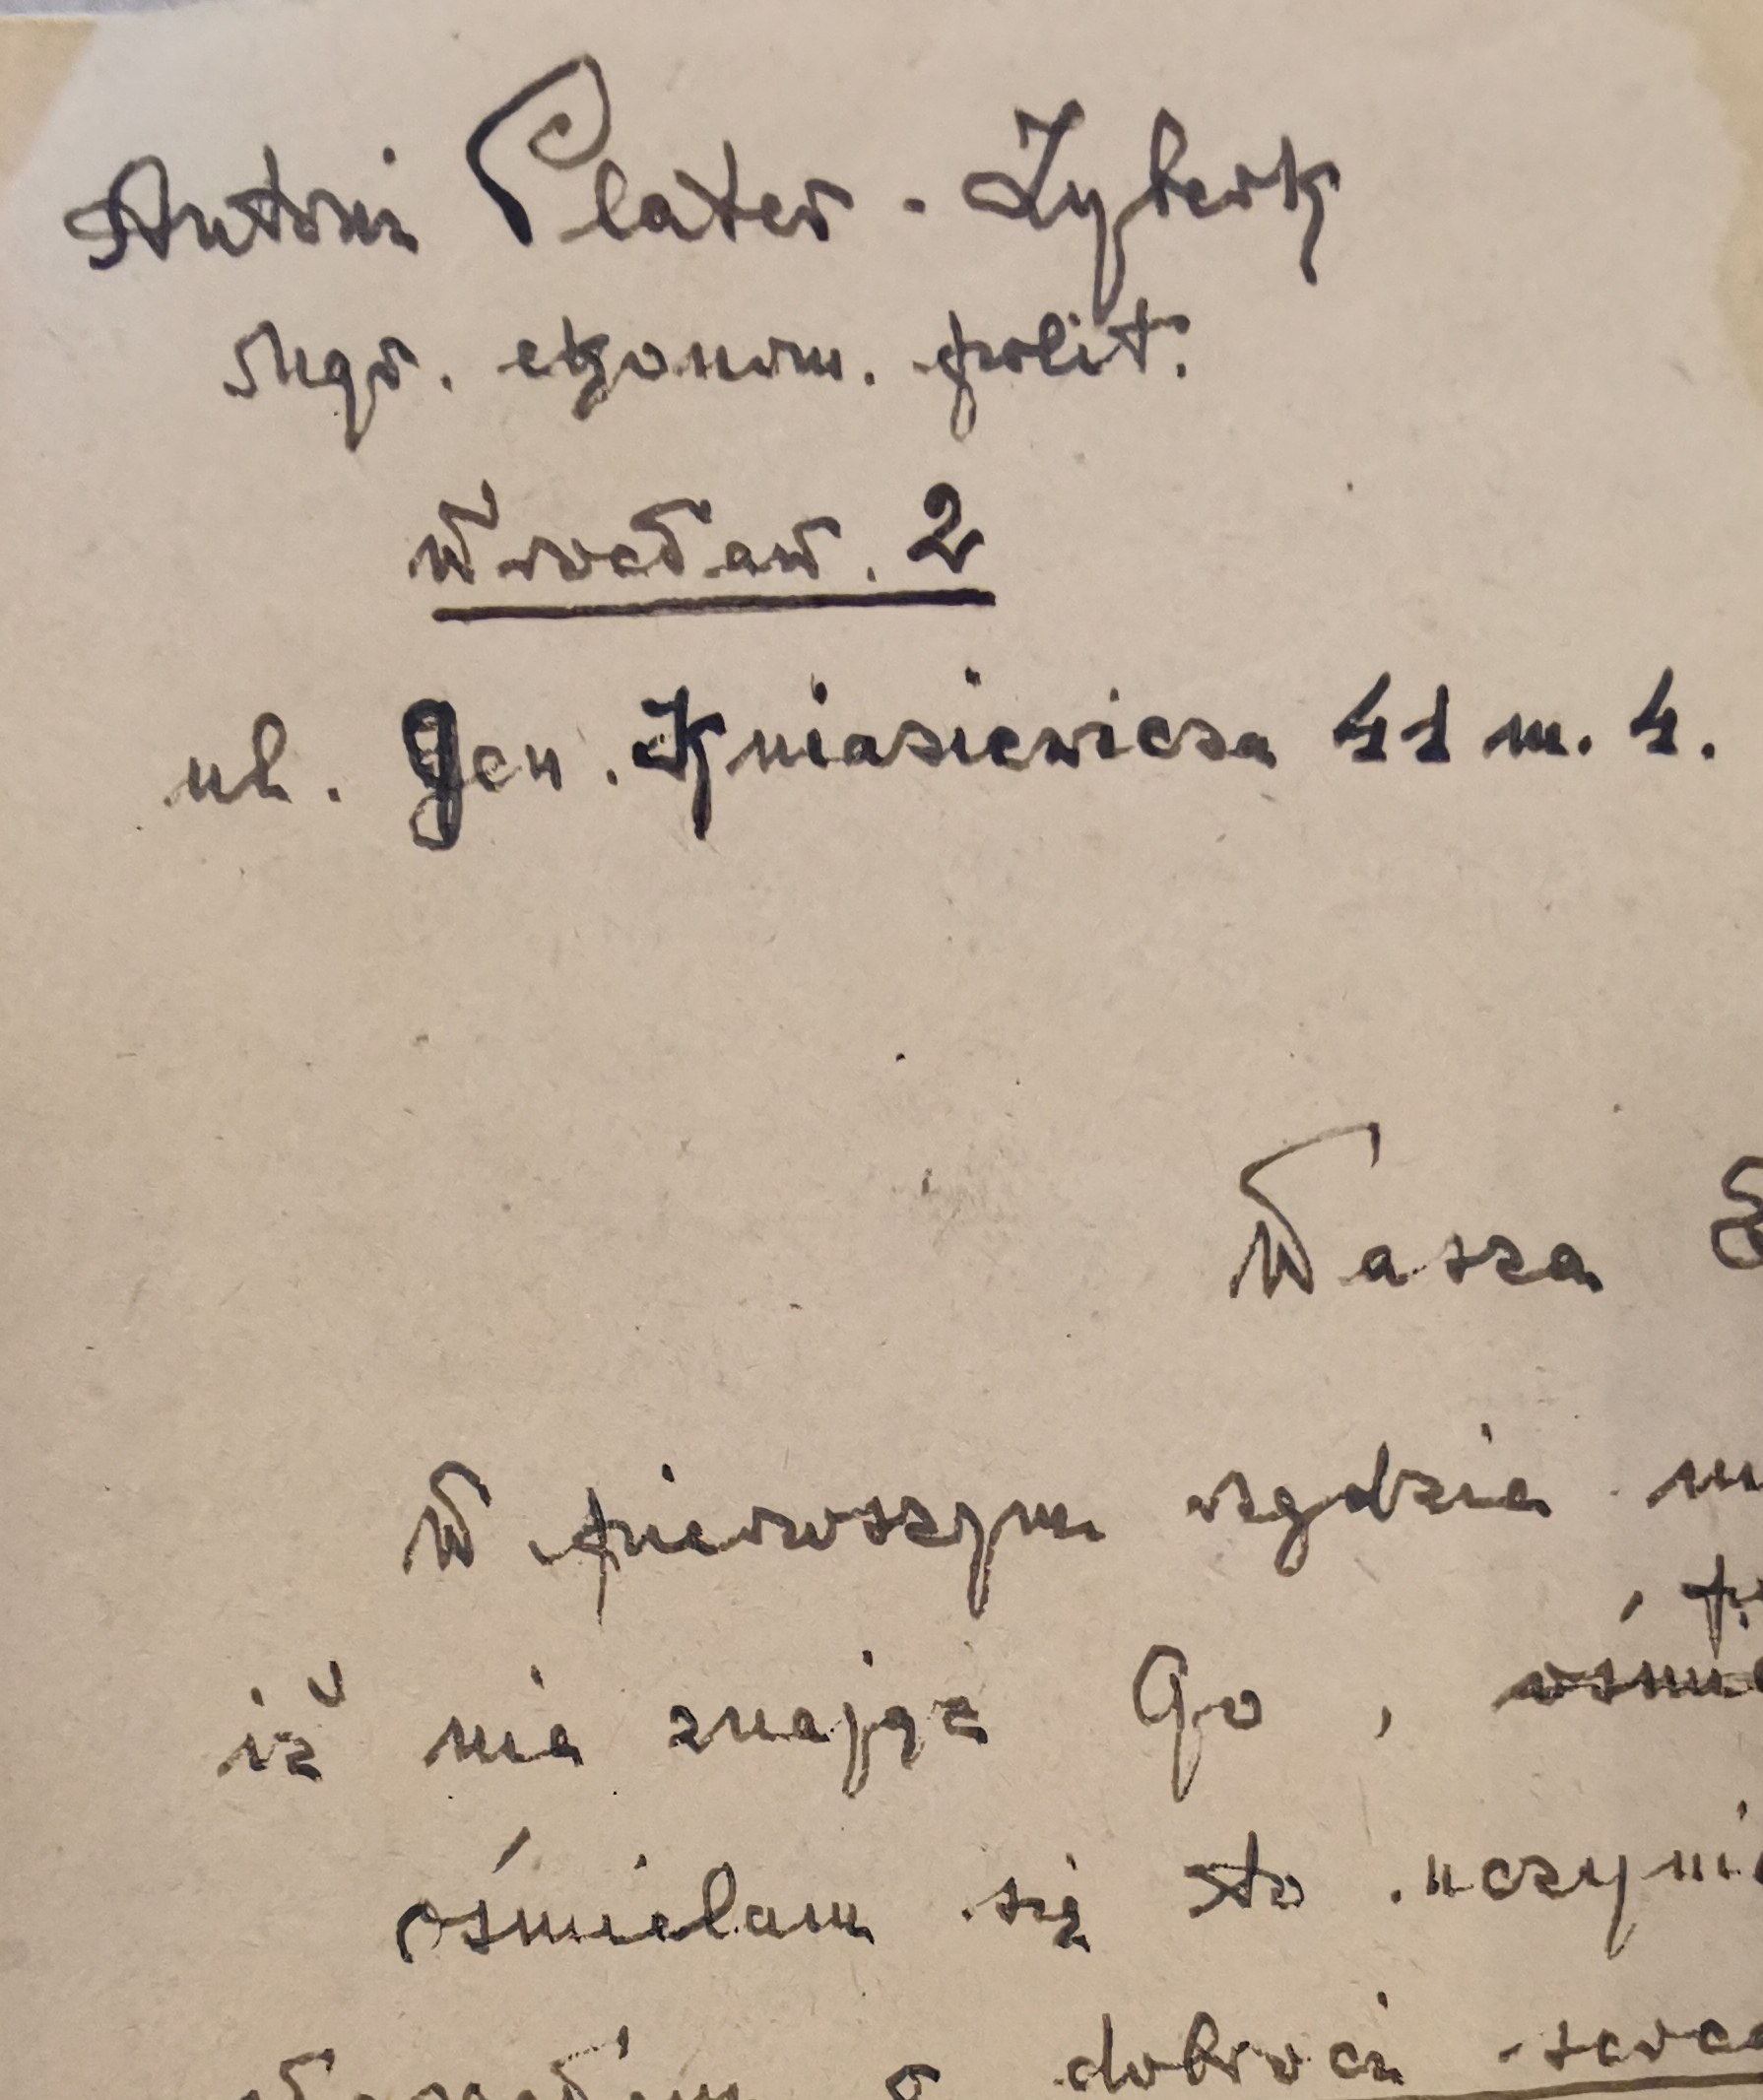 Antoni Plater - Zyberk
Mgr. ekonom. polit.
Wrocław. 2
ul. Gen. Kniaziewicza 41 m. 4.
Wasza
W pierwszym rzędzie
iż nie znając Go,
ośmielam się to
o dobroci